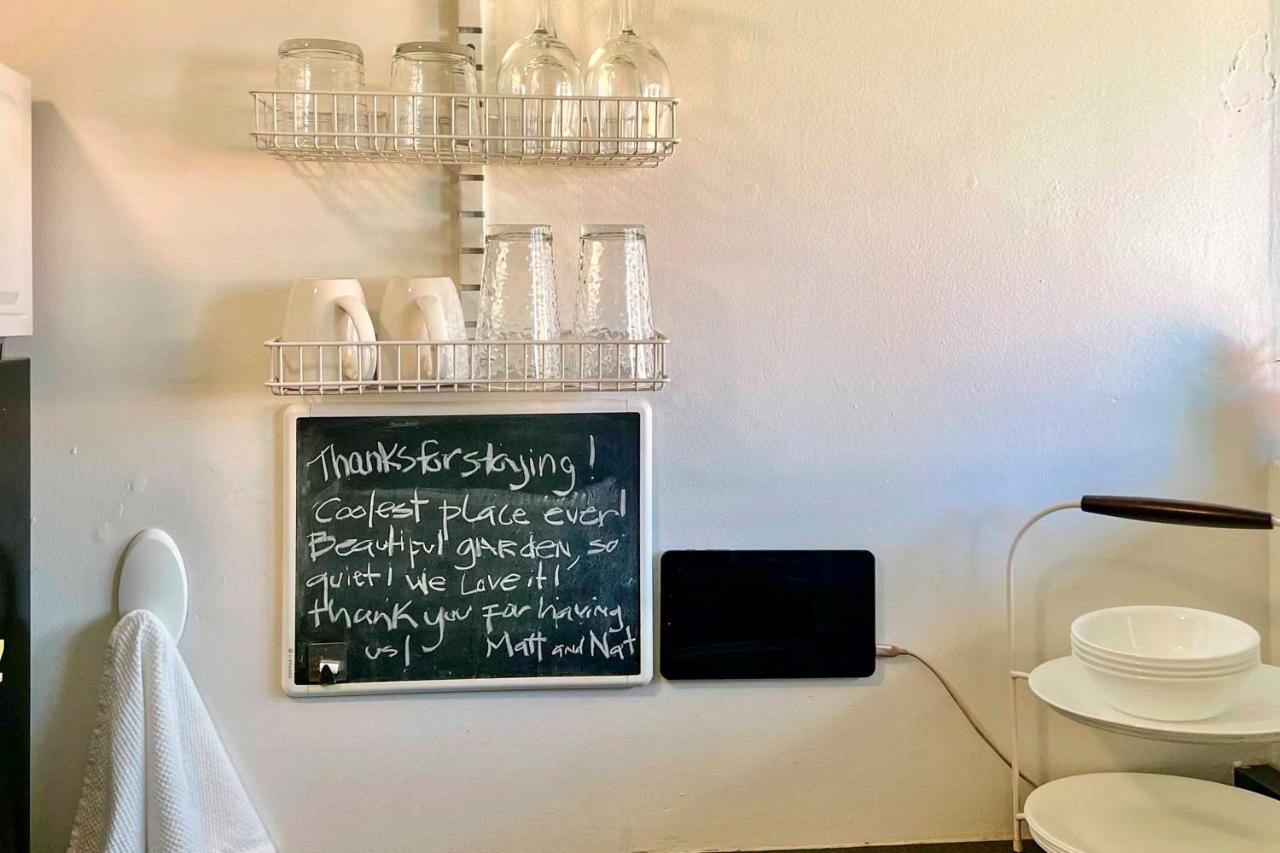 Thanks for staying!
Coolest place ever!
Beautiful gARden, so
quiet! we Love it!
thank you For having
us! Matt and Nat